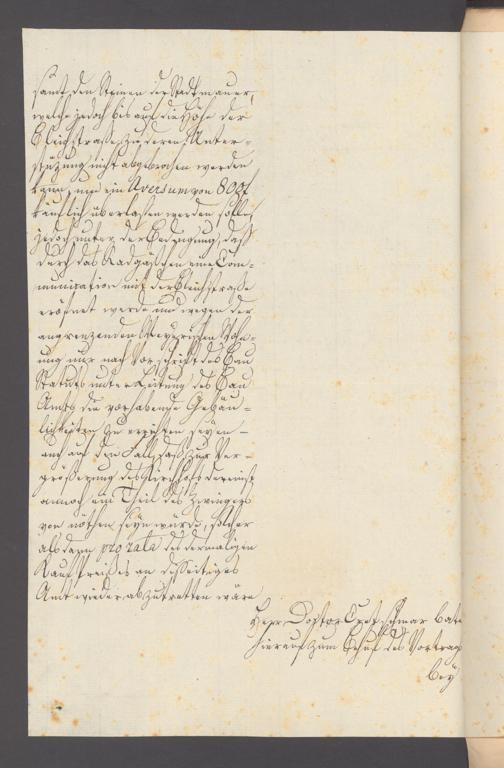 samt den Steinen der Stadtmauer,
welche jedoch bis auf die Höhe der
Bleichstraße zu deren Unter-
stützung nicht abgebrochen werden
kann, um ein Aversum von 80 f
käuflich überlassen werden solle,
jedoch unter der Bedingung, daß
durch das Radgäßchen eine Com-
munication mit der Bleichstraße
eröfnet werde und wegen der
angrenzenden Wohn-
ung nur nach Vorschrift des Bau
Statuts unter Leitung des Bau
Amts die vorhabende Gebäu-
lichkeiten zu errichten seyen –
auch auf den Fall, daß zur Ver-
größerung des Kirchhofs dereinst
annoch ein Theil des Zwingers
von nöthen seyn würde, solcher
alsdann pro rata des dermaligen
Kauf Preißes an disseitiges
Amt wieder abzutretten wäre
Herr Doctor bate
hierauf zum Behuf des Vortrags
bey